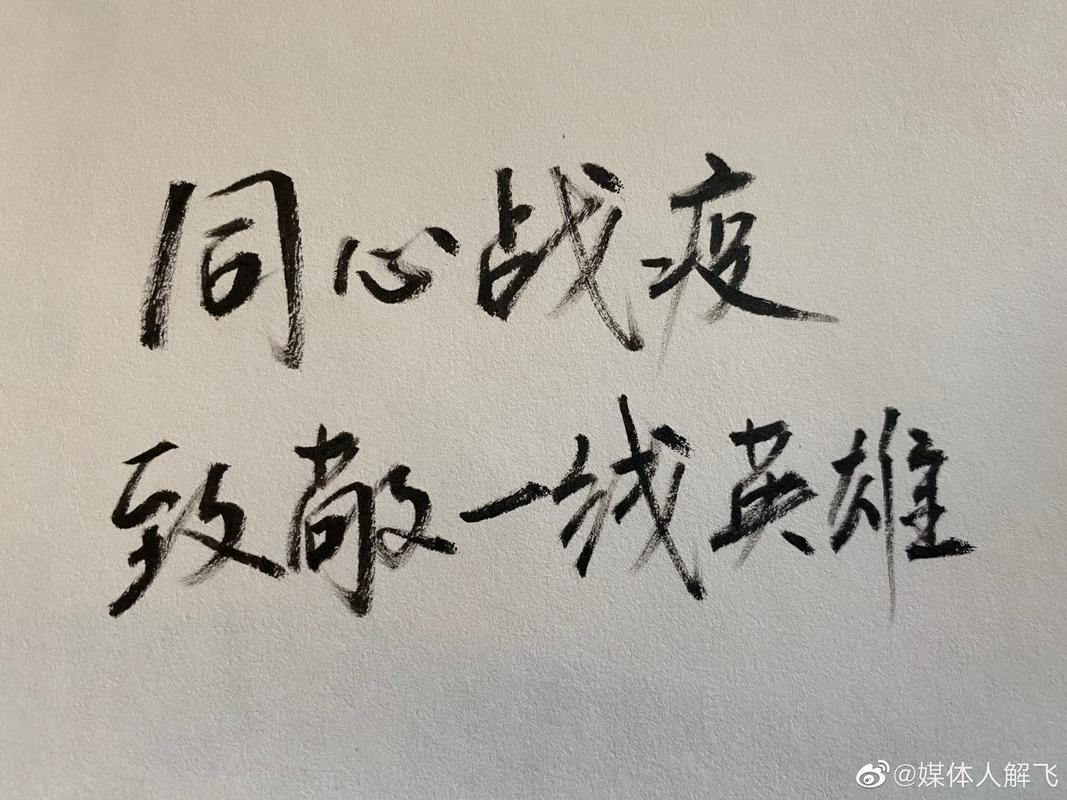 同心战疫
致敬一线英雄
@媒体人解飞